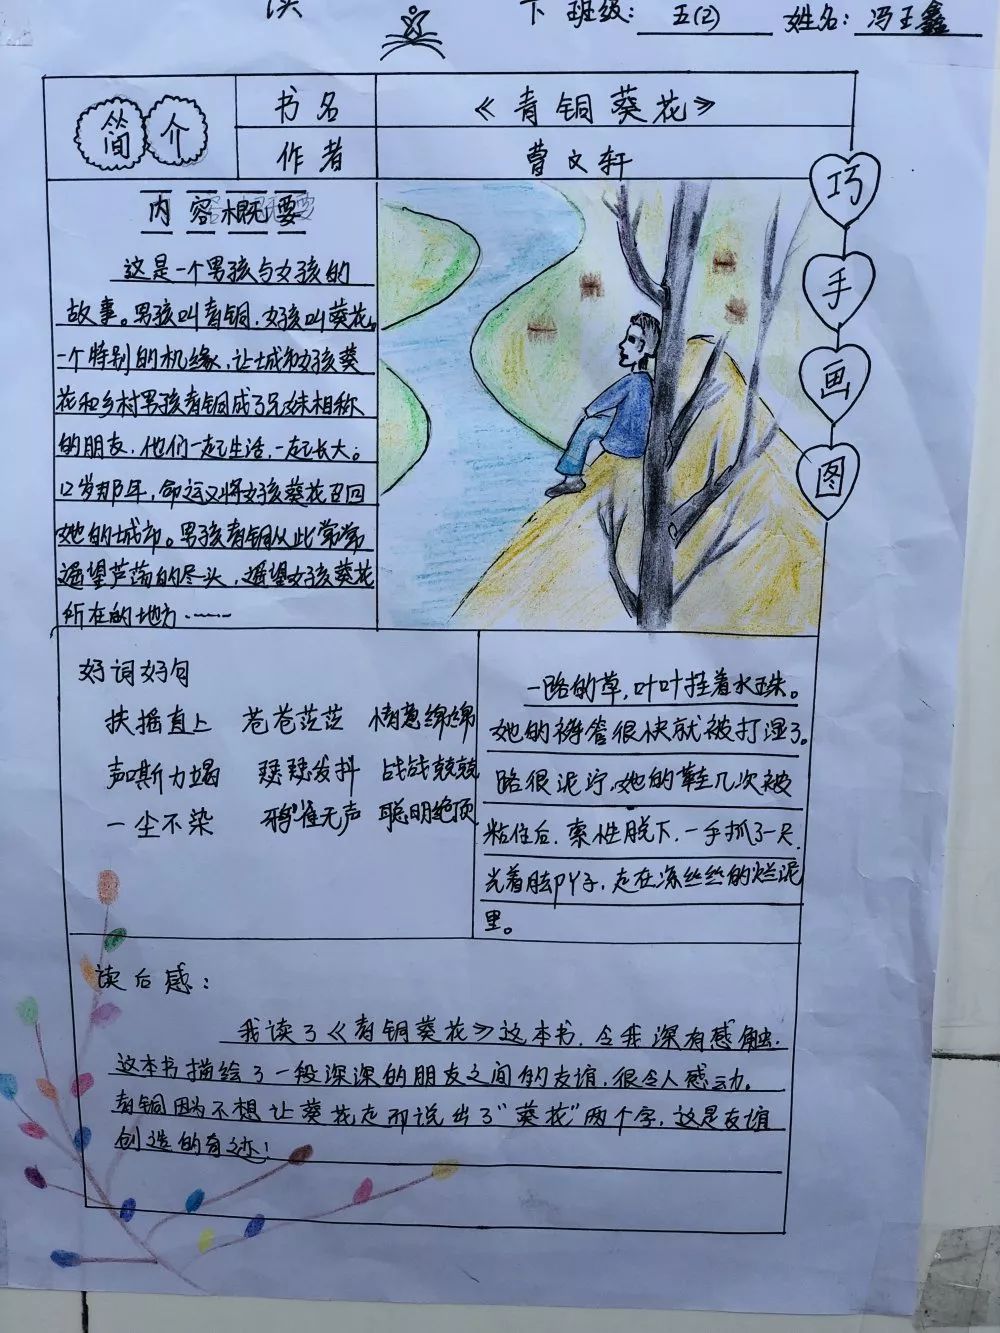 读
卡 班级: 五(2) 姓名: 冯王鑫
简介 书名 《青铜葵花》
作者 曹文轩
巧手画图
内容概要
这是一个男孩与女孩的
故事。男孩叫青铜,女孩叫葵花。
一个特别的机缘,让城和女孩葵
花和乡村男孩青铜成了兄妹相称
的朋友,他们一起生活,一起长大。
12岁那年,命运又将女孩葵花召回
她的城市。男孩青铜从此常常
遥望芦荡的尽头,遥望女孩葵花
所在的地方……
好词好句
扶摇直上 苍苍茫茫 情意绵绵
声嘶力竭 瑟瑟发抖 战战兢兢
一尘不染 鸦雀无声 聪明绝顶
一路的草,叶叶挂着水珠。
她的裤管很快就被打湿了。
路很泥泞,她的鞋几次被
粘住后,索性脱下,一手抓了一只,
光着脚丫子,走在凉丝丝的烂泥
里。
读后感:
我读了《青铜葵花》这本书,令我深有感触,
这本书描绘了一段深深的朋友之间的友谊,很令人感动。
青铜因为不想让葵花走而说出了“葵花”两个字,这是友谊
创造的奇迹!